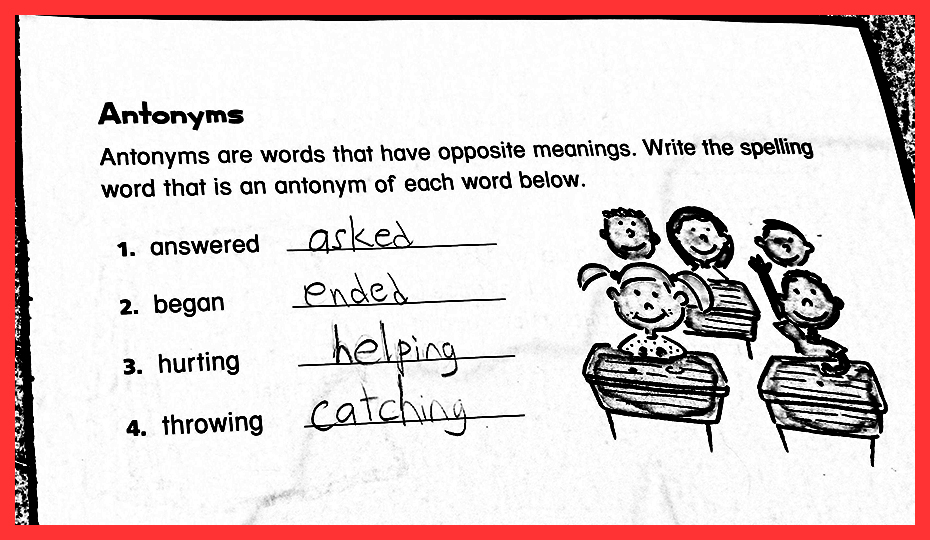 Antonyms
Antonyms are words that have opposite meanings. Write the spelling
word that is an antonym of each word below.
1. answered asked
2. began ended
3. hurting helping
4. throwing catching